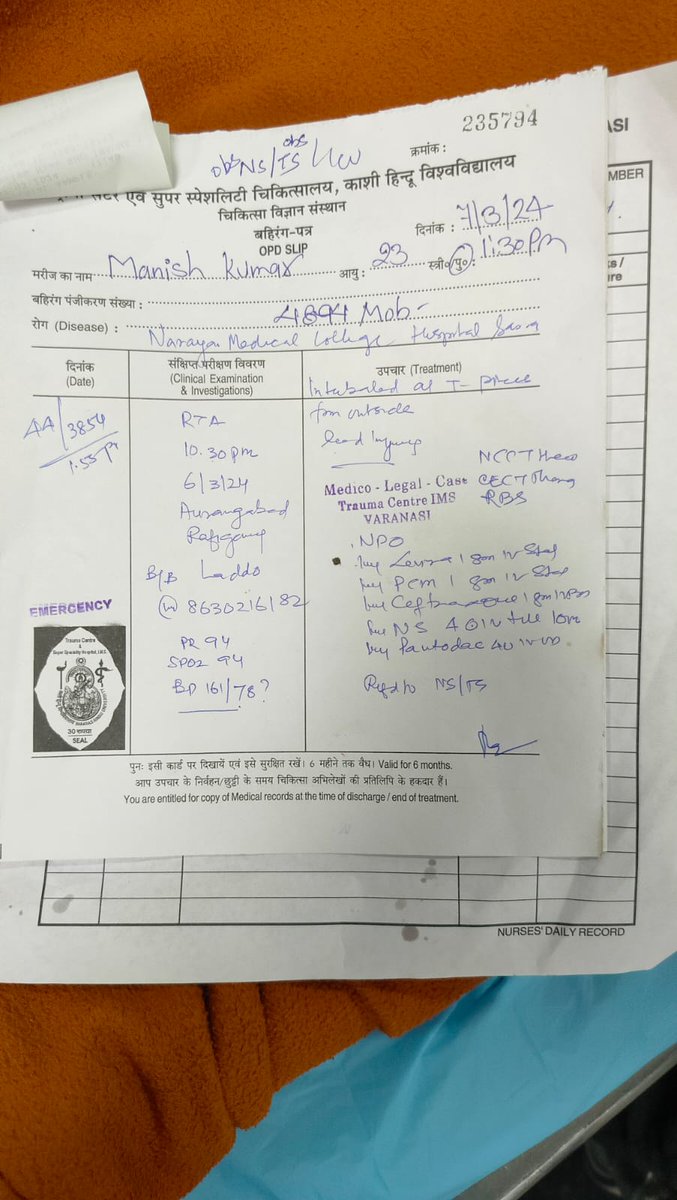 235794
क्रमांक :
obs
obs NS/TS/
ASI
MBER
सेंटर एवं सुपर स्पेशलिटी चिकित्सालय, काशी हिन्दू विश्वविद्यालय
चिकित्सा विज्ञान संस्थान
बहिरंग-पत्र
OPD SLIP
दिनांक : 7/3/24
मरीज का नाम Manish Kumar आयु : 23 स्त्री०/पु० : 1:30pm
बहिरंग पंजीकरण संख्या :
4894 Mob-
रोग (Disease) : Narayan Medical College Hospital
दिनांक
(Date)
संक्षिप्त परीक्षण विवरण
(Clinical Examination
& Investigations)
उपचार (Treatment)
AA/3854
RTA
10.30pm
6/3/24
Aurangabad
Rafiganj
B/B Laddo
8630216182
PR 94
SPO2 94
BP 161/78?
Intubated at T-piece
from outside
head injury
NCCT Head
CECT Thorax
RBS
Medico - Legal - Case
Trauma Centre IMS
VARANASI
NPO
Inj Levra 1 gm IV Stat
Inj PCM 1 gm IV Stat
Inj
NS
Inj Pantodac 40 IV
Refd to NS/TS
EMERGENCY
Trauma Centre
&
Super Speciality Hospital, IMS
30 रूपया
SEAL
पुनः इसी कार्ड पर दिखायें एवं इसे सुरक्षित रखें। 6 महीने तक वैध। Valid for 6 months.
आप उपचार के निर्वहन/छुट्टी के समय चिकित्सा अभिलेखों की प्रतिलिपि के हकदार हैं।
You are entitled for copy of Medical records at the time of discharge / end of treatment.
NURSES' DAILY RECORD